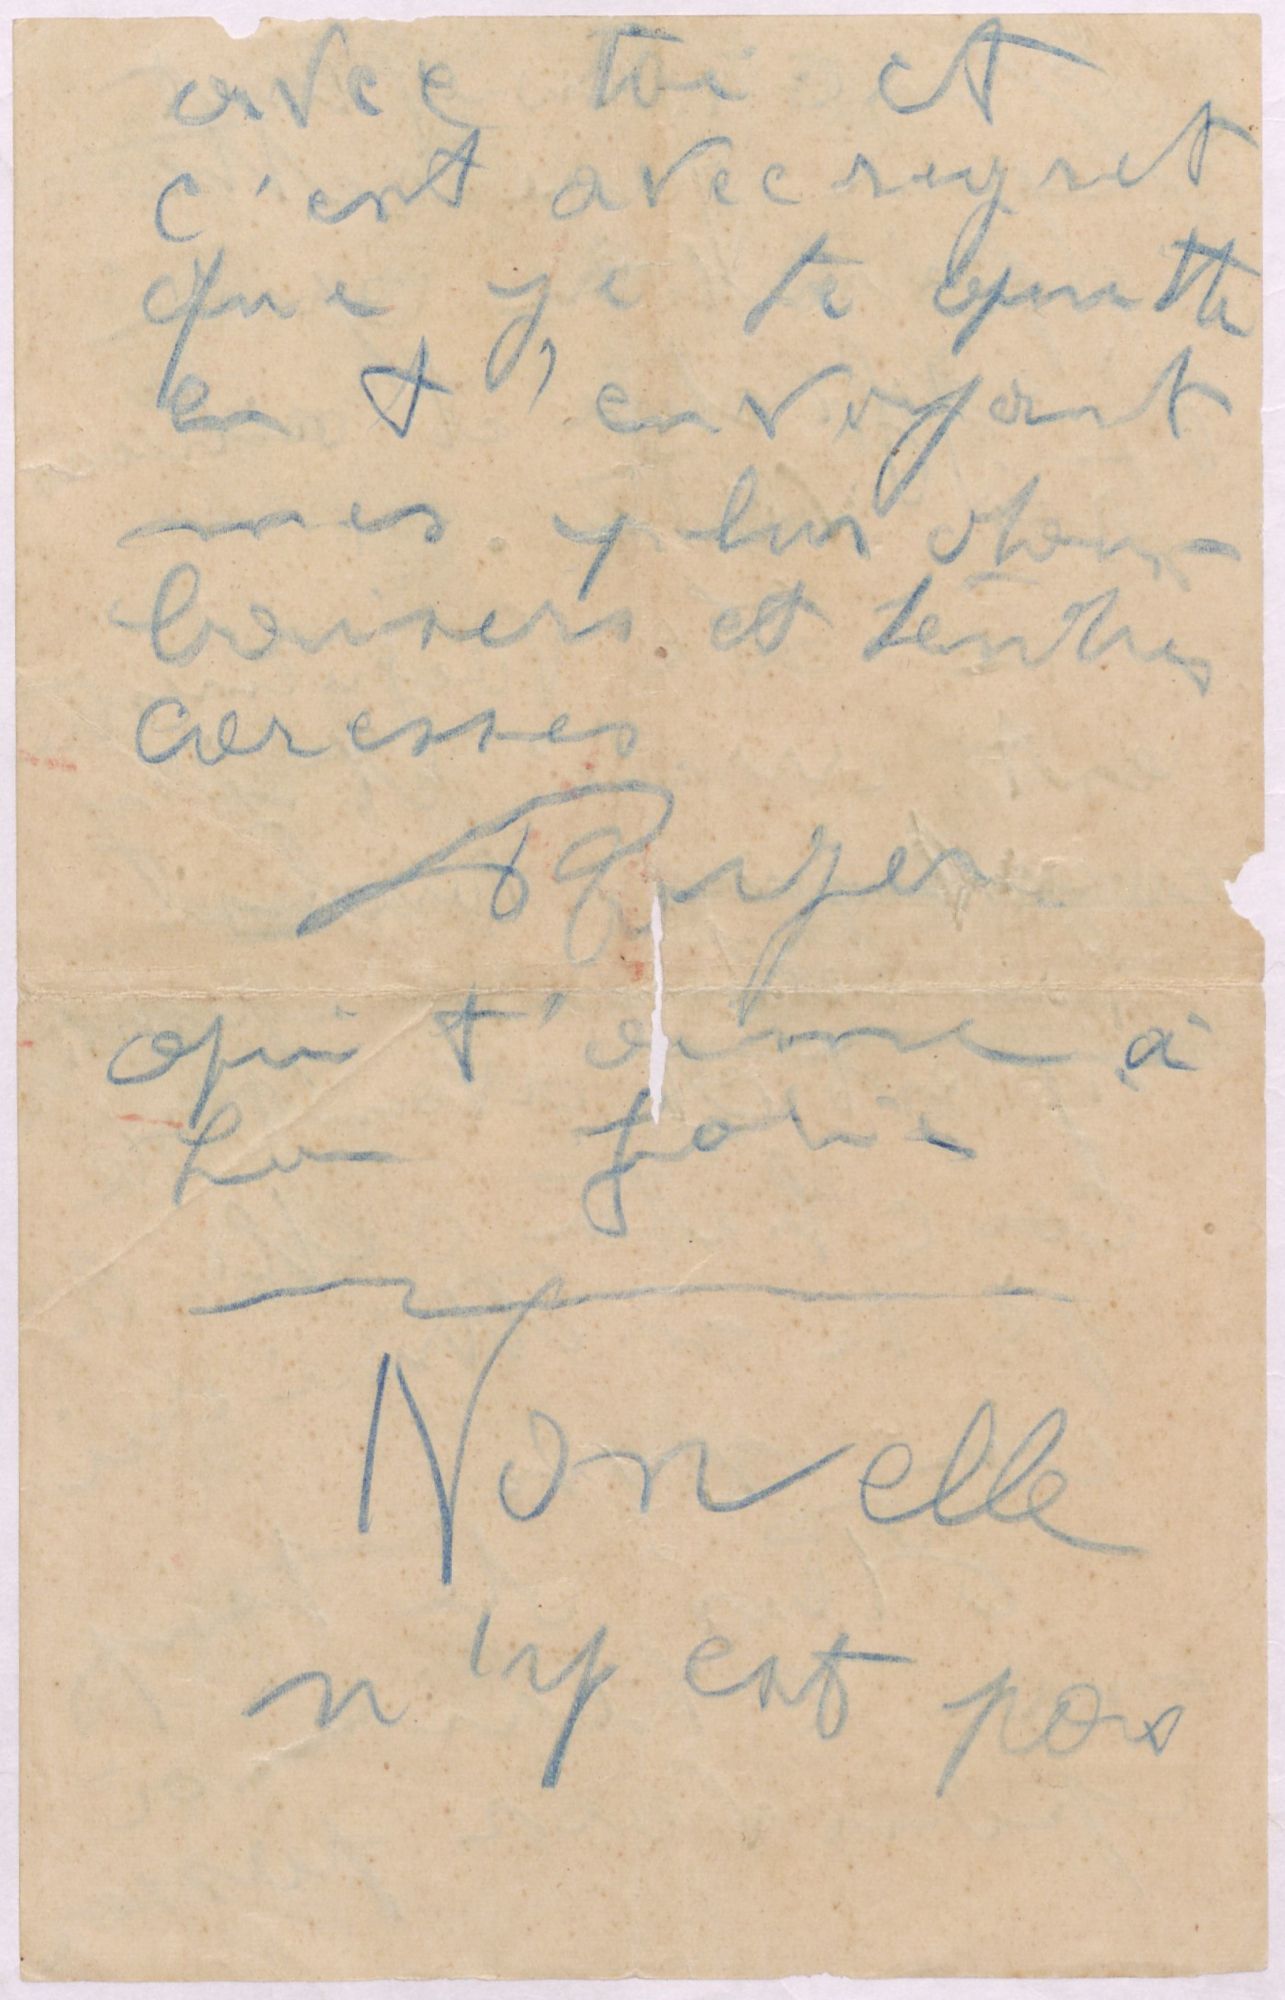 avec toi et
c'est avec regret
que je te quitte
en t'envoyant
mes plus doux
baisers et tendres
caresses
Roger
qui t'aime à
la folie
Non elle
n'y est pas